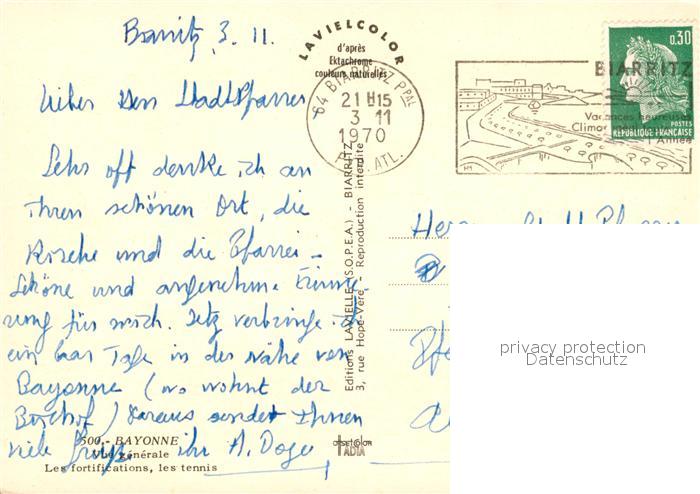 Biarritz, 3. 11.
Lieber Herr Stadtpfarrer
Sehr oft denke ich an
Ihren schönen Ort, die
Kirche und die Pfarrei -
Schöne und angenehme Erinne-
rung für mich. Jetz verbringe ich
ein paar Tage in der Nähe von
Bayonne (wo wohnt der
Bischof) daraus sendet Ihnen
viele Grüße Ihr A.
500 - BAYONNE
Vue générale
Les fortifications, les tennis
LAVIELCOLOR
d'après
Ektachrome
couleurs naturelles
64 BIARRITZ PPAL
21 H15
3 11
1970
ATL.
Editions LAVIELLE (S.O.P.E.A.) - BIARRITZ
3, rue Hope-Vère - Reproduction interdite
offset color
IADIA
BIARRITZ
Vacances heureuses
Climat
l'Année
0,30
POSTES
RÉPUBLIQUE FRANÇAISE
Herrn Stadtpfarrer
privacy protection
Datenschutz